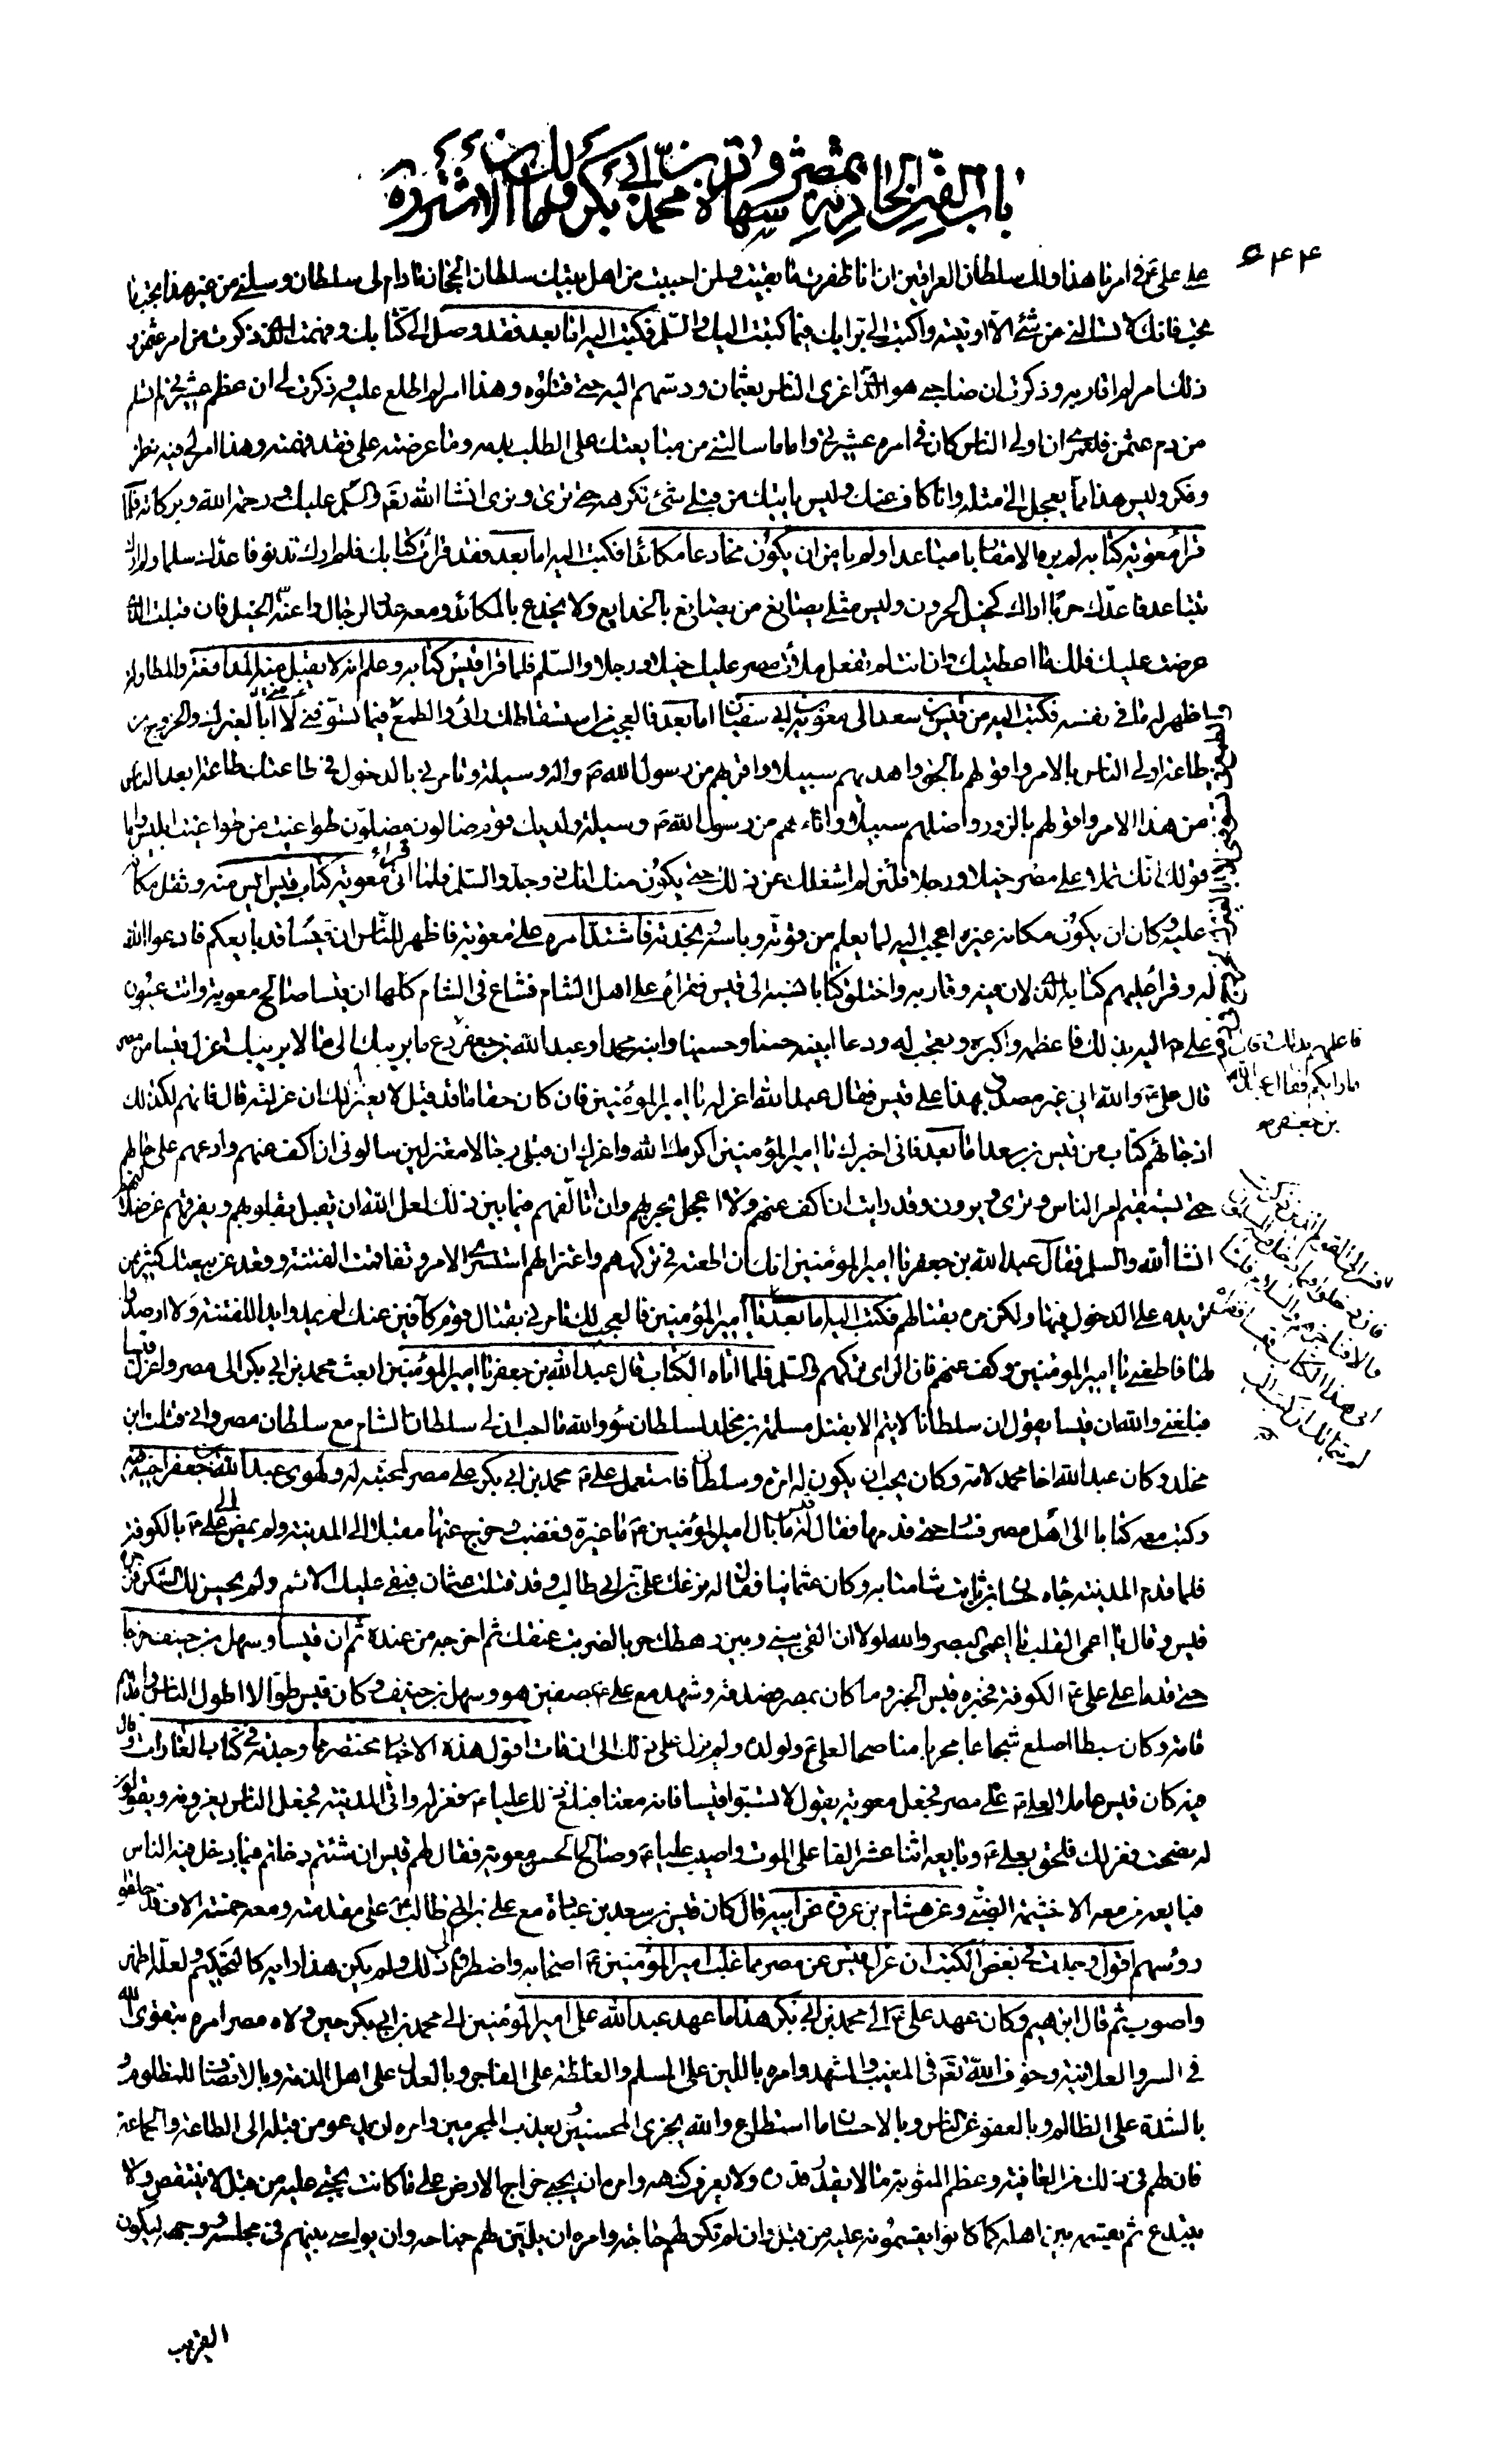 باب الفتن الحادثة بمصر وشهادة محمد بن أبي بكر ومالك الاشتر ره
۶۴۴
على علي ع في امرنا هذا ولك سلطان العراقين ان انا ظفرت ما بقيت ولمن احببت من اهل بيتك سلطان الحجاز ما دام لي سلطان وسلني من غير هذا مما
تحب فانك لا تسالني من شئ الا اوتيته واكتب الي برايك فيما كتبت اليك والسلم فكتب اليه اما بعد فقد وصل الي كتابك وفهمت الذي ذكرت من امر عثمن و
ذلك امر لم اقاربه وذكرت ان صاحبي هو الذي اغرى الناس بعثمان ودسهم اليه حتى قتلوه وهذا امر لم اطلع عليه وذكرت لي ان عظم عشيرتي لم تسلم
من دم عثمن فلعمري ان اولى الناس كان في امره عشيرتي واما ما سالتني من مبايعتك على الطلب بدمه وما عرضته علي فقد فهمته وهذا امر لي فيه نظر
وفكر وليس هذا مما يعجل الى مثله وانا كاف عنك وليس ياتيك من قبلي شئ تكرهه حتى ترى ونرى انشا الله تعم والسلم عليك ورحمة الله وبركاته فلما
قرأ معوية كتابه لم يره الا مقاربا مباعدا ولم يامن ان يكون مخادعا مكائدا فكتب اليه اما بعد فقد قرات كتابك فلم ارك تدنو فاعدك سلما ولم ارك
تتباعد فاعدك حربا اراك كحبل الجرور وليس مثلي يصانع بالخدايع ولا يخدع بالمكائد ومعه عدد الرجال واعنة الخيل فان قبلت الذي
عرضت عليك فلك ما اعطيتك وان انت لم تفعل ملأت مصر عليك خيلا ورجلا والسلم فلما قرا قيس كتابه وعلم انه لا يقبل منه المدافعة والمطاولة
اظهر له ما في نفسه فكتب اليه من قيس بن سعد الى معوية بن ابي سفيان اما بعد فالعجب من استسقاطك رائي والطمع فيما تسومني لا ابا لغيرك والخروج من
طاعة اولى الناس بالامر واقولهم بالحق واهديهم سبيلا واقربهم من رسول الله ص واله وسيلة وتامرني بالدخول في طاعتك طاعة ابعد الناس
من هذا الامر واقولهم بالزور واضلهم سبيلا وانائهم من رسول الله ص وسيلة ولديك قوم ضالون مضلون طواغيت من طواغيت ابليس واما
قولك انك تملا علي مصر خيلا ورجلا فلئن لم اشغلك عن ذلك حتى يكون منك انك لذو جد والسلم فلما اتى معوية كتاب قيس ايس منه وثقل مكانه
عليه وكان ان يكون مكانه غيره اعجب اليه لما يعلم من قوته وباسه ونجدته فاشتد امره على معوية فاظهر للناس ان قيسا قد بايعكم فادعوا الله
له وقرا عليهم كتابه الذي لان فيه وقاربه واختلق كتابا نسبه الى قيس فقراه على اهل الشام فشاع في الشام كلها ان قيسا صالح معوية واتت عيون
علي ع اليه بذلك فاعظمه واكبره وتعجب له ودعا ابنيه حسنا وحسينا وابنه محمدا وعبد الله بن جعفر دع ما يريبك الى ما لا يريبك اعزل قيسا من مصر
فاعلمهم بذلك وقال
ما رايكم فقال عبد الله
بن جعفر
قال علي ع والله اني غير مصدق بهذا على قيس فقال عبد الله اعزله يا امير المؤمنين فان كان حقا ما قد قيل لا يعتزلك ان عزلته قال فانهم لكذلك
اذ جائهم كتاب من قيس بن سعد اما بعد فاني اخبرك يا امير المؤمنين اكرمك الله واعزك ان قبلي رجالا معتزلين سالوني ان اكف عنهم وادعهم على حالهم
حتى يستقيم امر الناس ونرى ويرون وقد رايت ان اكف عنهم ولا اعجل بحربهم وان اتالفهم فيما بين ذلك لعل الله ان يقبل بقلوبهم ويفرقهم عن ضلالتهم
انشا الله والسلم فقال عبد الله بن جعفر يا امير المؤمنين انك ان اطعته في تركهم واعتزالهم استسرى الامر وتفاقمت الفتنة وقعد عن بيعتك كثير ممن
تريده على الدخول فيها ولكن مره بقتالهم فكتب اليه اما بعد يا امير المؤمنين فالعجب لك تامرني بقتال قوم كافين عنك لم يمدوا يدا للفتنة ولا ارصدوا
لها فاطعني يا امير المؤمنين وكف عنهم فان الراي تركهم والسلم فلما اتاه الكتاب قال عبد الله بن جعفر يا امير المؤمنين ابعث محمد بن ابي بكر الى مصر واعزل قيسا
فبلغني والله ان قيسا يقول ان سلطانا لا يتم الا بقتل مسلمة بن مخلد لسلطان سوء والله ما احب ان لي سلطان الشام مع سلطان مصر واني قتلت ابن
مخلد وكان عبد الله اخا محمد لامه وكان يحب ان يكون له امرة وسلطان فاستعمل علي ع محمد بن ابي بكر على مصر لمحبته له ولهوى عبد الله بن جعفر اخيه فيه
وكتب معه كتابا الى اهل مصر فسار حتى قدمها فقال له قيس ما بال امير المؤمنين ع ما غيره فغضب وخرج عنها مقبلا الى المدينة ولم يمض الى علي ع بالكوفة
فلما قدم المدينة جاءه حسان بن ثابت شامتا به وكان عثمانيا فقال له نزعك علي بن ابي طالب وقد قتلت عثمان فبقي عليك الاثم ولم يحسن لك الشكر فزجره
قيس وقال يا اعمى القلب يا اعمى البصر والله لولا ان القي بيني وبين رهطك حربا لضربت عنقك ثم اخرجه من عنده ثم ان قيسا وسهل بن حنيف خرجا
حتى قدما على علي ع الكوفة فخبره قيس الخبر وما كان بمصر فصدقه وشهد مع علي ع صفين هو وسهل بن حنيف وكان قيس طوالا اطول الناس وامدهم
قامة وكان سبطا اصلع شجاعا مجربا مناصحا لعلي ع ولولده ولم يزل على ذلك الى ان مات اقول هذه الاخبار مختصر مما وجدته في كتاب الغارات وقال
فيه كان قيس عاملا لعلي ع على مصر فجعل معوية يقول لا تسبوا قيسا فانه معنا فبلغ ذلك عليا ع فعزله واتى المدينة فجعل الناس يغرونه ويقولون
له نصحت فعزلك فلحق بعلي ع وبايعه اثنا عشر الفا على الموت واصيب علي ع وصالح الحسن معوية فقال لهم قيس ان شئتم دخلتم فيما دخل فيه الناس
فبايعه من معه الا خيثمة الضبي وعن هشام بن عروة عن ابيه قال كان قيس بن سعد بن عبادة مع علي بن ابي طالب ع على مقدمته ومعه خمسة الاف قد حلقوا
رؤسهم اقول وجدت في بعض الكتب ان عزل قيس عن مصر مما غلب امير المؤمنين ع اصحابه واضطروه الى ذلك ولم يكن هذا رايه كالتحكيم ولعله اظهر
واصوب ثم قال ابراهيم وكان عهد علي ع الى محمد بن ابي بكر هذا ما عهد عبد الله علي امير المؤمنين الى محمد بن ابي بكر حين ولاه مصر امره بتقوى الله
في السر والعلانية وخوف الله تعم في المغيب والمشهد وامره باللين على المسلم والغلظة على الفاجر وبالعدل على اهل الذمة وبالانصاف للمظلوم و
بالشدة على الظالم وبالعفو عن الناس وبالاحسان ما استطاع والله يجزى المحسنين ويعذب المجرمين وامره ان يدعو من قبله الى الطاعة والجماعة
فان لهم في ذلك من العافية وعظم المثوبة ما لا يقدر قدره ولا يعرف كنهه وامره ان يجبي خراج الارض على ما كانت تجبى عليه من قبل لا ينتقص ولا
يبتدع ثم يقسمه بين اهله كما كانوا يقسمونه عليه من قبل وان لم تكن لهم حاجة وامره ان يلين لهم جناحه وان يواسي بينهم في مجلسه ووجهه ليكون
القريب